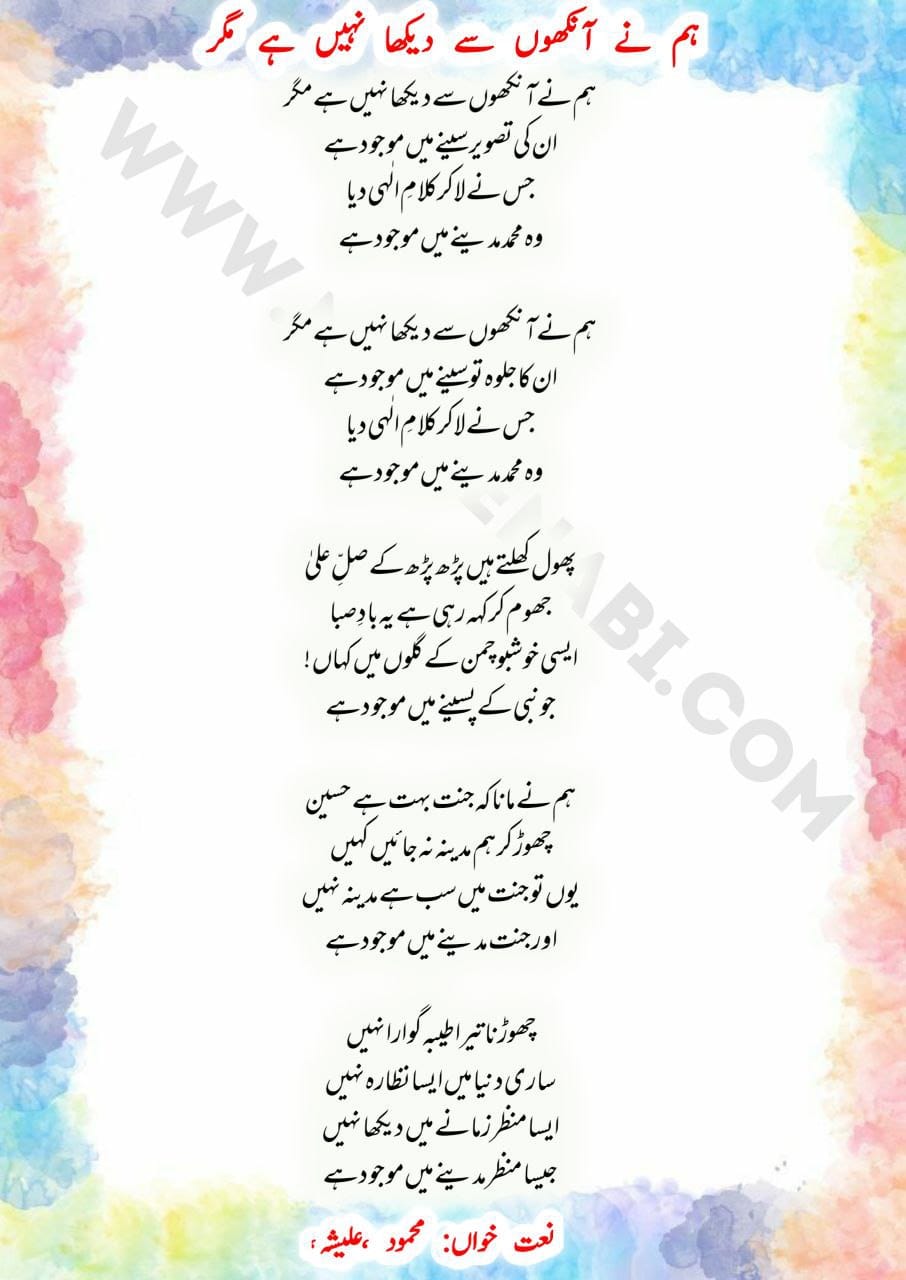 ہم نے آنکھوں سے دیکھا نہیں ہے مگر
ہم نے آنکھوں سے دیکھا نہیں ہے مگر
ان کی تصویر سینے میں موجود ہے
جس نے لا کر کلامِ الٰہی دیا
وہ محمد مدینے میں موجود ہے
ہم نے آنکھوں سے دیکھا نہیں ہے مگر
ان کا جلوہ تو سینے میں موجود ہے
جس نے لا کر کلامِ الٰہی دیا
وہ محمد مدینے میں موجود ہے
پھول کھلتے ہیں پڑھ پڑھ کے صلِّ علیٰ
جھوم کر کہہ رہی ہے یہ بادِ صبا
ایسی خوشبو چمن کے گلوں میں کہاں!
جو نبی کے پسینے میں موجود ہے
ہم نے مانا کہ جنت بہت ہے حسین
چھوڑ کر ہم مدینہ نہ جائیں کہیں
یوں تو جنت میں سب ہے مدینہ نہیں
اور جنت مدینے میں موجود ہے
چھوڑنا تیرا طیبہ گوارا نہیں
ساری دنیا میں ایسا نظارہ نہیں
ایسا منظر زمانے میں دیکھا نہیں
جیسا منظر مدینے میں موجود ہے
نعت خواں: محمود ،علیشہ،